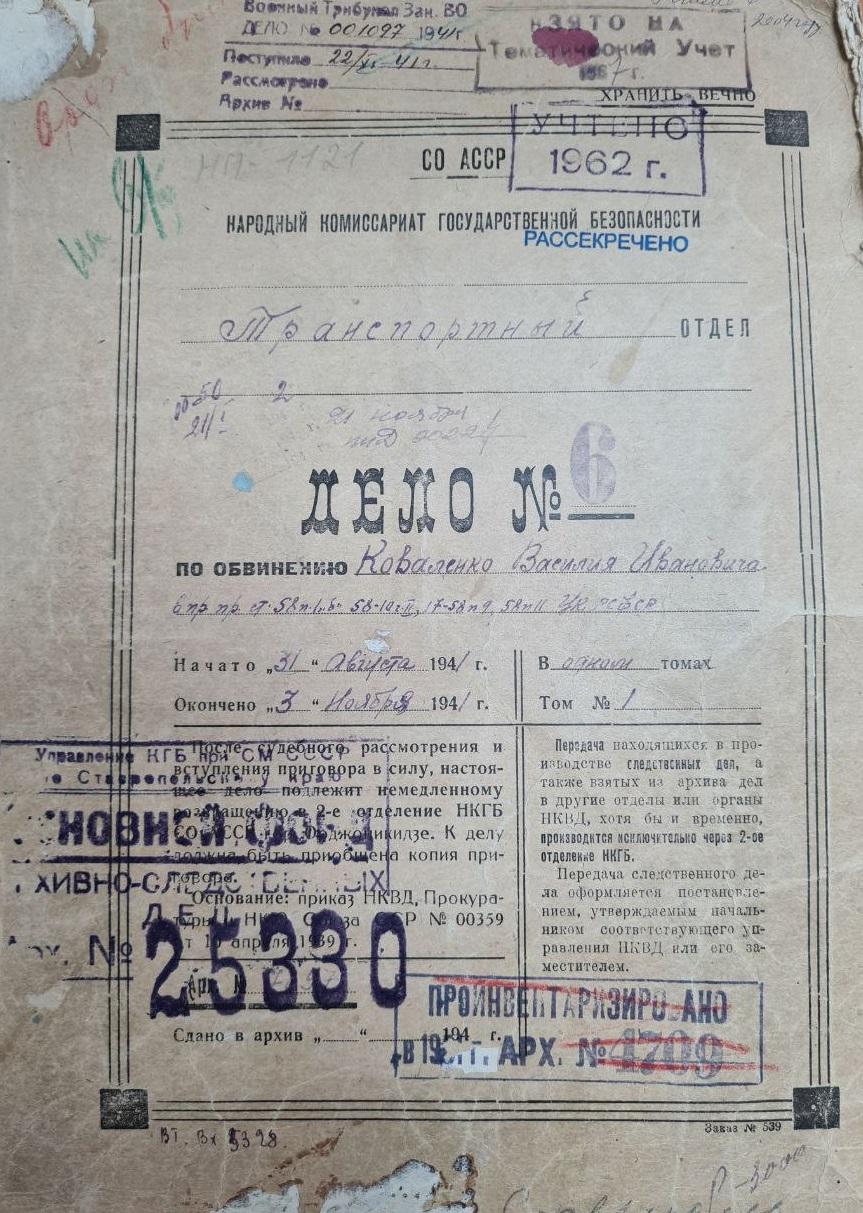 Военный Трибунал Зак. ВО
ДЕЛО № 001097 1941г.
Поступило 22/XI-41г.
Рассмотрено
Архив №
ВЗЯТО НА
Тематический Учет
1967 г.
ХРАНИТЬ ВЕЧНО
УЧТЕНО
1962 г.
НП-1121
СО АССР
НАРОДНЫЙ КОМИССАРИАТ ГОСУДАРСТВЕННОЙ БЕЗОПАСНОСТИ
РАССЕКРЕЧЕНО
Транспортный ОТДЕЛ
21 ноября
ДЕЛО № 6
ПО ОБВИНЕНИЮ Коваленко Василия Ивановича
58-10 ч II, 17-58 п 9, 58 п 11 УК РСФСР
Начато „31“ Августа 1941 г.
Окончено „3“ Ноября 1941 г.
В одном томах
Том № 1
После судебного рассмотрения и
вступления приговора в силу, настоя-
щее дело подлежит немедленному
возвращению в 2-е отделение НКГБ
СО АССР г. Орджоникидзе. К делу
должна быть приобщена копия при-
говора.
Основание: приказ НКВД, Прокура-
туры, НКЮ Союза ССР № 00359
от апреля 1939 г.
Арх. №
Сдано в архив „ “ 194 г.
Передача находящихся в про-
изводстве следственных дел, а
также взятых из архива дел
в другие отделы или органы
НКВД, хотя бы и временно,
производится исключительно через 2-ое
отделение НКГБ.
Передача следственного де-
ла оформляется постановле-
нием, утверждаемым началь-
ником соответствующего уп-
равления НКВД или его за-
местителем.
Управление КГБ при СМ СССР
по Ставропольскому краю
НОВНОЙ ФОНД
ХИВНО-СЛЕДСТВЕННЫХ
ДЕЛ
АРХ. № 25330
ПРОИНВЕНТАРИЗИРОВАНО
в 19 г. АРХ. № 4709
Заказ № 539
ВТ. Вх 5328.
Р-3000